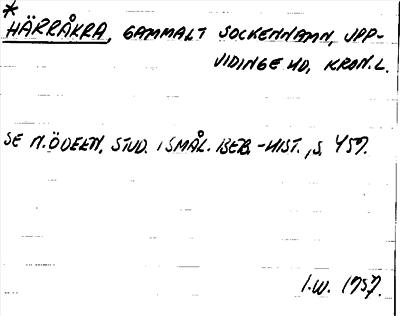 *
HÄRRÅKRA, GAMMALT SOCKENNAMN, UPP-
VIDINGE HD, KRON.L.
SE N. ÖDEEN, STUD. I SMÅL. BEB.-HIST., S. 457.
I.W. 1957.